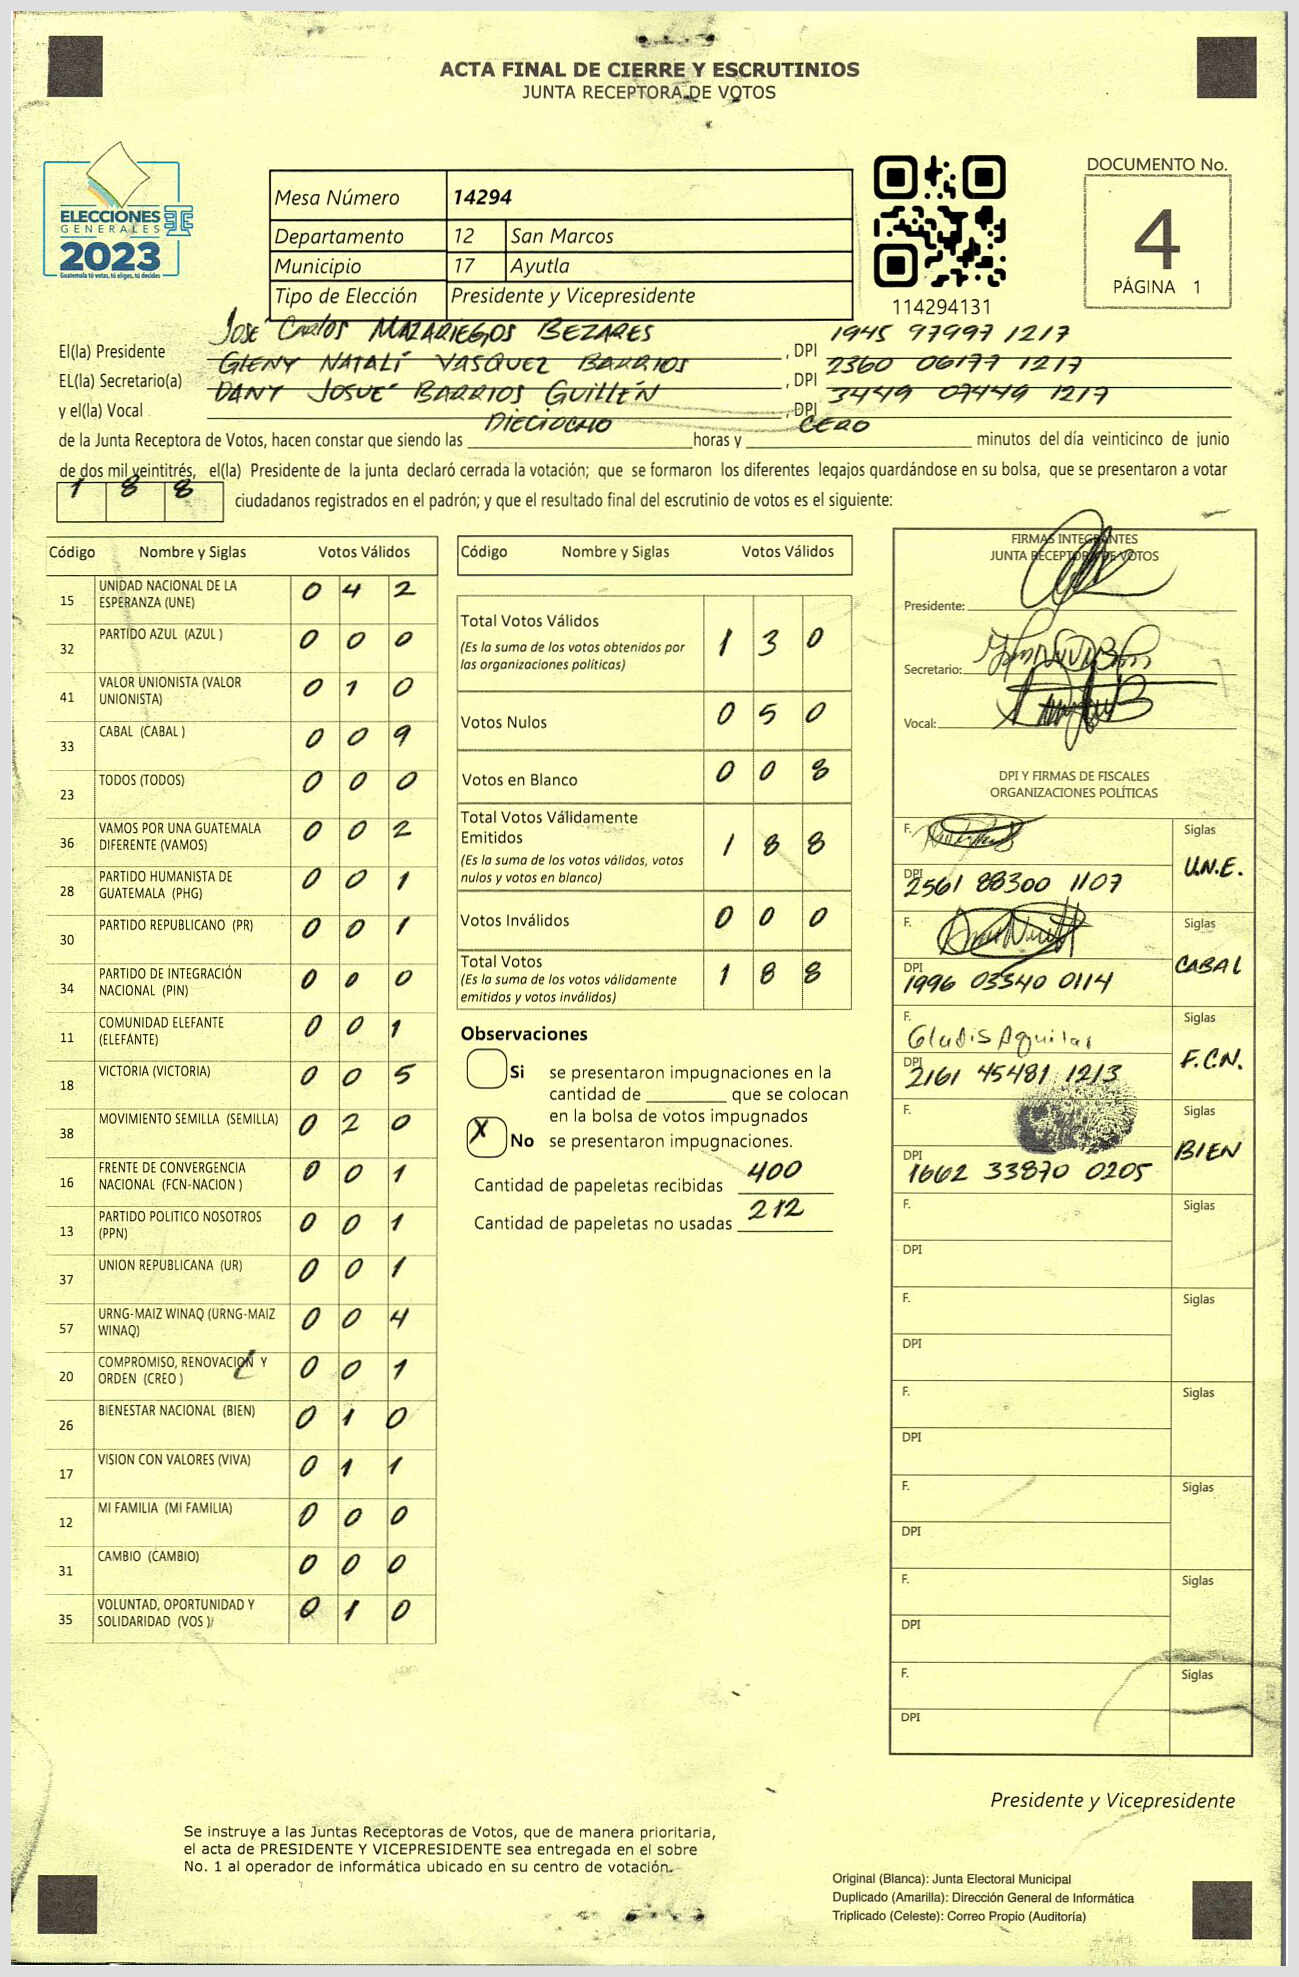 ACTA FINAL DE CIERRE Y ESCRUTINIOS
JUNTA RECEPTORA DE VOTOS
ELECCIONES
GENERALES
2023
Guatemala tú votas, tú eliges, tú decides
Mesa Número 14294
Departamento 12 San Marcos
Municipio 17 Ayutla
Tipo de Elección Presidente y Vicepresidente
114294131
DOCUMENTO No.
4
PÁGINA 1
El(la) Presidente JOSÉ CARLOS MAZARIEGOS BEZARES , DPI 1945 97997 1217
EL(la) Secretario(a) GLENY NATALÍ VASQUEZ BARRIOS , DPI 2360 06177 1217
y el(la) Vocal DANY JOSUÉ BARRIOS GUILLÉN , DPI 3449 07449 1217
de la Junta Receptora de Votos, hacen constar que siendo las DIECIOCHO horas y CERO minutos del día veinticinco de junio
de dos mil veintitrés, el(la) Presidente de la junta declaró cerrada la votación; que se formaron los diferentes legajos quardándose en su bolsa, que se presentaron a votar
188 ciudadanos registrados en el padrón; y que el resultado final del escrutinio de votos es el siguiente:
Código Nombre y Siglas Votos Válidos
15 UNIDAD NACIONAL DE LA ESPERANZA (UNE) 0 4 2
32 PARTIDO AZUL (AZUL ) 0 0 0
41 VALOR UNIONISTA (VALOR UNIONISTA) 0 1 0
33 CABAL (CABAL ) 0 0 9
23 TODOS (TODOS) 0 0 0
36 VAMOS POR UNA GUATEMALA DIFERENTE (VAMOS) 0 0 2
28 PARTIDO HUMANISTA DE GUATEMALA (PHG) 0 0 1
30 PARTIDO REPUBLICANO (PR) 0 0 1
34 PARTIDO DE INTEGRACIÓN NACIONAL (PIN) 0 0 0
11 COMUNIDAD ELEFANTE (ELEFANTE) 0 0 1
18 VICTORIA (VICTORIA) 0 0 5
38 MOVIMIENTO SEMILLA (SEMILLA) 0 2 0
16 FRENTE DE CONVERGENCIA NACIONAL (FCN-NACION ) 0 0 1
13 PARTIDO POLITICO NOSOTROS (PPN) 0 0 1
37 UNION REPUBLICANA (UR) 0 0 1
57 URNG-MAIZ WINAQ (URNG-MAIZ WINAQ) 0 0 4
20 COMPROMISO, RENOVACION Y ORDEN (CREO ) 0 0 1
26 BIENESTAR NACIONAL (BIEN) 0 1 0
17 VISION CON VALORES (VIVA) 0 1 1
12 MI FAMILIA (MI FAMILIA) 0 0 0
31 CAMBIO (CAMBIO) 0 0 0
35 VOLUNTAD, OPORTUNIDAD Y SOLIDARIDAD (VOS ) 0 1 0
Código Nombre y Siglas Votos Válidos
Total Votos Válidos 1 3 0
(Es la suma de los votos obtenidos por
las organizaciones políticas)
Votos Nulos 0 5 0
Votos en Blanco 0 0 8
Total Votos Válidamente
Emitidos 1 8 8
(Es la suma de los votos válidos, votos
nulos y votos en blanco)
Votos Inválidos 0 0 0
Total Votos 1 8 8
(Es la suma de los votos válidamente
emitidos y votos inválidos)
Observaciones
Si se presentaron impugnaciones en la
cantidad de ________ que se colocan
en la bolsa de votos impugnados
X No se presentaron impugnaciones.
Cantidad de papeletas recibidas 400
Cantidad de papeletas no usadas 212
FIRMAS INTEGRANTES
JUNTA RECEPTORA DE VOTOS
Presidente:
Secretario:
Vocal:
DPI Y FIRMAS DE FISCALES
ORGANIZACIONES POLÍTICAS
F. Siglas
DPI 2561 88300 1107 U.N.E.
F. Siglas
DPI 1996 03340 0114 CABAL
F. Gladis Aguilar Siglas
DPI 2161 45481 1213 F.C.N.
F. Siglas
DPI 1662 33870 0205 BIEN
F. Siglas
DPI
F. Siglas
DPI
F. Siglas
DPI
F. Siglas
DPI
F. Siglas
DPI
F. Siglas
DPI
Presidente y Vicepresidente
Se instruye a las Juntas Receptoras de Votos, que de manera prioritaria,
el acta de PRESIDENTE Y VICEPRESIDENTE sea entregada en el sobre
No. 1 al operador de informática ubicado en su centro de votación.
Original (Blanca): Junta Electoral Municipal
Duplicado (Amarilla): Dirección General de Informática
Triplicado (Celeste): Correo Propio (Auditoría)